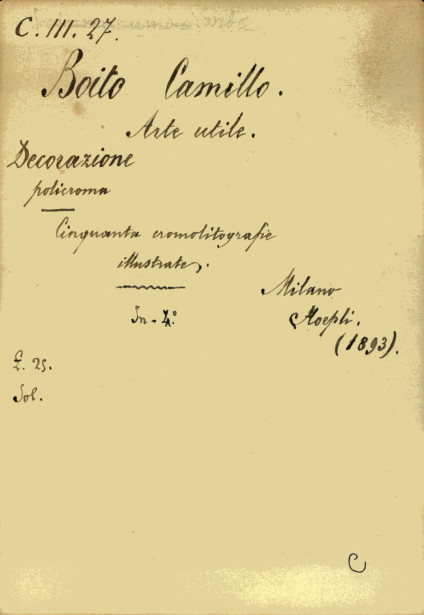 C. III. 27.
Boito Camillo.
Arte utile.
Decorazione
policroma
Cinquanta cromolitografie
illustrate.
Milano
In-4.°
Hoepli.
(1893).
£. 25.
Sol.
C